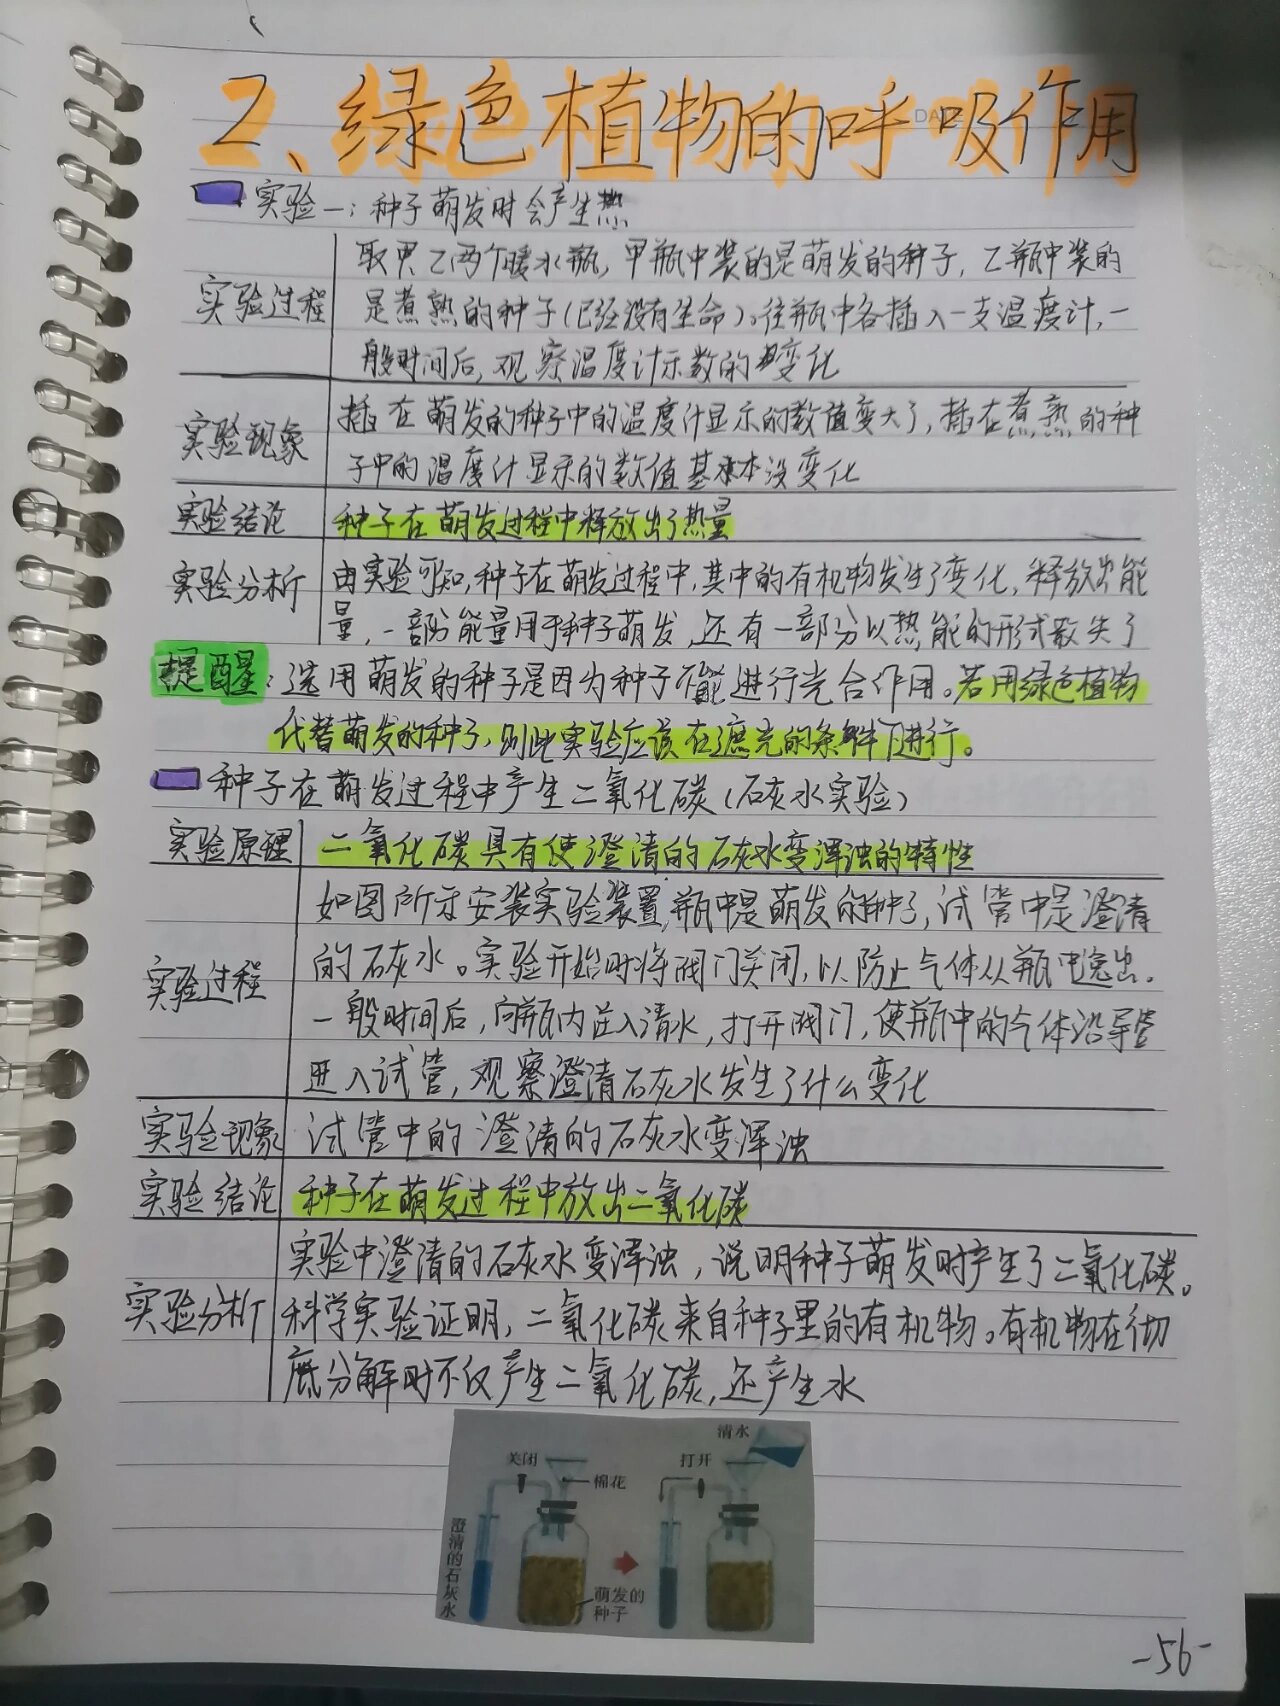 2、绿色植物的呼吸作用
DATE
实验一：种子萌发时会产生热
实验过程
取甲乙两个暖水瓶，甲瓶中装的是萌发的种子，乙瓶中装的
是煮熟的种子(已经没有生命)。往瓶中各插入一支温度计，一
般时间后，观察温度计示数的变化
实验现象
插在萌发的种子中的温度计显示的数值变大了，插在煮熟的种
子中的温度计显示的数值基本没变化
实验结论
种子在萌发过程中释放出了热量
实验分析
由实验可知，种子在萌发过程中，其中的有机物发生了变化，释放出能
量，一部分能量用于种子萌发，还有一部分以热能的形式散失了
提醒：选用萌发的种子是因为种子不能进行光合作用。若用绿色植物
代替萌发的种子，则此实验应该在遮光的条件下进行。
种子在萌发过程中产生二氧化碳(石灰水实验)
实验原理
二氧化碳具有使澄清的石灰水变浑浊的特性
实验过程
如图所示安装实验装置，瓶中是萌发的种子，试管中是澄清
的石灰水。实验开始时将阀门关闭，以防止气体从瓶中逸出。
一般时间后，向瓶内注入清水，打开阀门，使瓶中的气体沿导管
进入试管，观察澄清石灰水发生了什么变化
实验现象
试管中的澄清的石灰水变浑浊
实验结论
种子在萌发过程中放出二氧化碳
实验分析
实验中澄清的石灰水变浑浊，说明种子萌发时产生了二氧化碳。
科学实验证明，二氧化碳来自种子里的有机物。有机物在彻
底分解时不仅产生二氧化碳，还产生水
关闭
棉花
澄清的石灰水
萌发的
种子
清水
打开
-56-